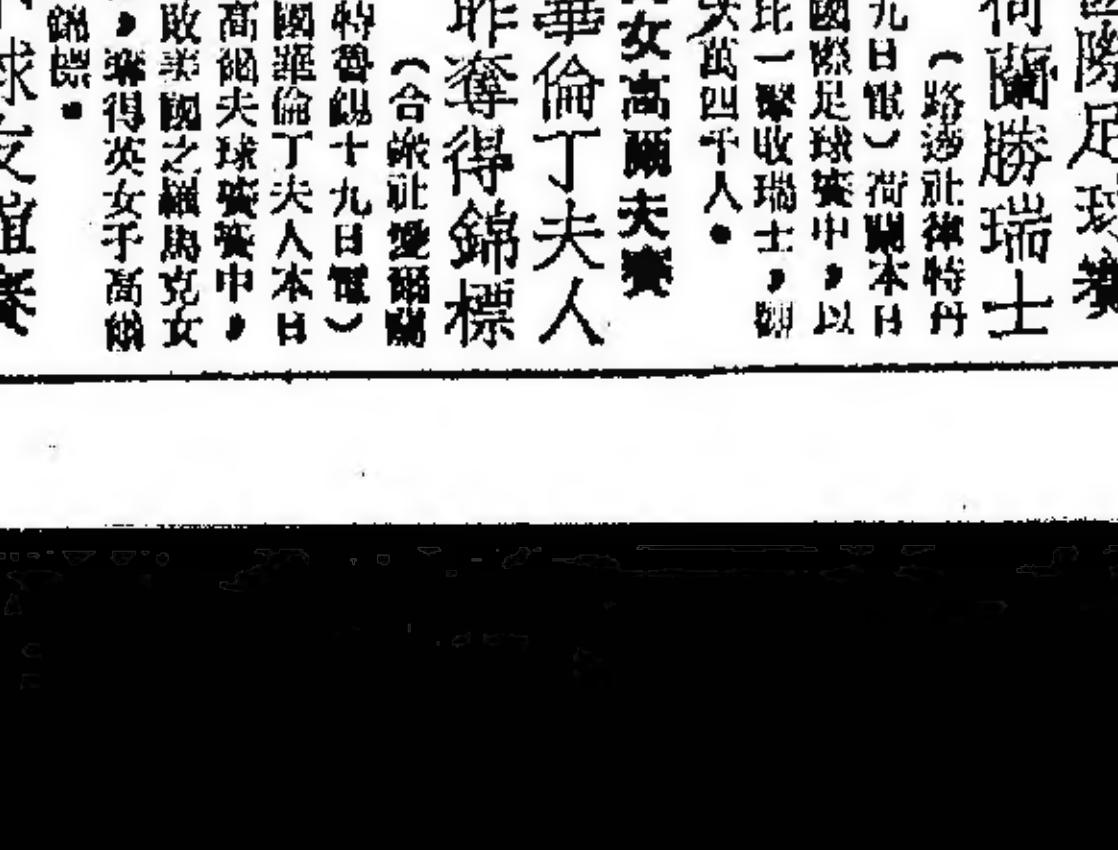 際足球賽
荷蘭勝瑞士
(路透社律特丹
九日電)荷蘭本日
國際足球賽中,以
比一擊敗瑞士,觀
共萬四千人●
女高爾夫賽
華倫丁夫人
昨奪得錦標
(合衆社愛爾蘭
特魯錫十九日電)
國華倫丁夫人本日
高爾夫球賽中,
敗美國之羅馬克女
,獲得英女子高爾
錦標●
球友誼賽